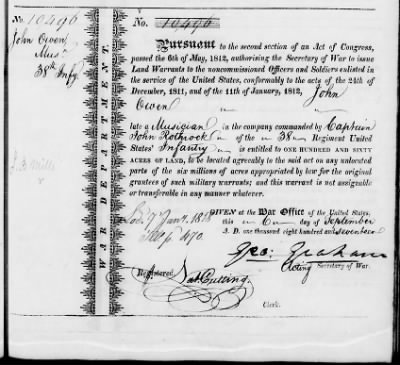 No. 10496
John Owen
Mus.
38th Infy.
WAR DEPARTMENT.
No. 10496
Pursuant to the second section of an Act of Congress,
passed the 6th of May, 1812, authorising the Secretary of War to issue
Land Warrants to the noncommissioned Officers and Soldiers enlisted in
the service of the United States, conformably to the acts of the 24th of
December, 1811, and of the 11th of January, 1812, John
Owen
late a Musician in the company commanded by Captain
John Rothrock of the 38 Regiment United
States' Infantry is entitled to ONE HUNDRED AND SIXTY
ACRES OF LAND, to be located agreeably to the said act on any unlocated
parts of the six millions of acres appropriated by law for the original
grantees of such military warrants; and this warrant is not assignable
or transferable in any manner whatever.
GIVEN at the War Office of the United States,
this 6 day of September
A. D. one thousand eight hundred and seventeen
Geo: Graham
Acting Secretary of War.
Registered
Nat Cutting
Clerk.